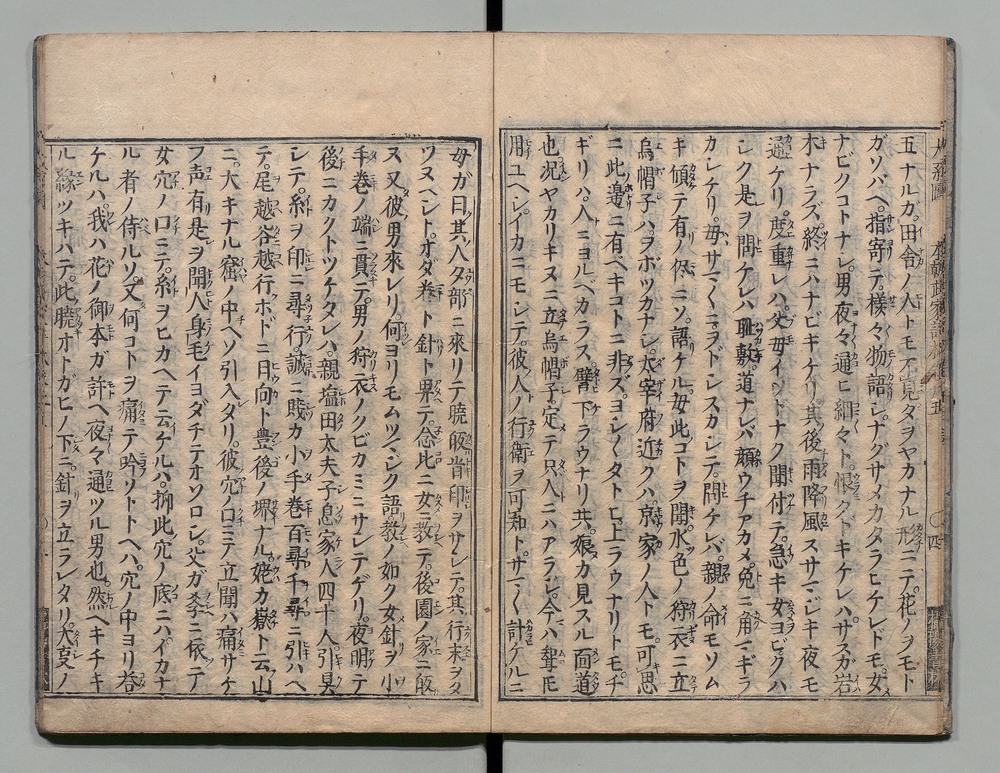 五ナルガ。田舎ノ人トモ不見タヲヤカナル形ニテ。花ノヲモト
ガソバヘ指寄テ。様々物語シ。ナグサメカタラヒケレドモ。女
ナビクコトナシ。男夜々通ヒ細々ト。恨クドキケレハ。サスガ岩
木ナラズ。終ニハナビキケリ。其後雨降風スサマシキ夜モ
通ケリ。度重レハ。父母イツトナク聞付テ。急キ女ヨビクハ
シク是ヲ問ケレハ。耻敷道ナレバ。顔ウチアカメ。兎ニ角マギラ
カシケリ。母サマ〱ニヲトシスカシテ。問ケレバ。親ノ命モソム
キ傾テ有ノ侭ニソ。語ケル。母此コトヲ聞。水色ノ狩衣ニ立
烏帽子ハヲボツカナシ。太宰府近クハ京家ノ人トモ。可思
ニ此邊ニ有ヘキコトニ非ズ。ヨシ〱タトヒ上ラウナリトモ。チ
ギリハ。人ニヨルベカラス。譬下ラウナリ共。娘カ見スル面道
也。况ヤカリキヌニ立烏帽子。定テ只人ニハアラシ。今ハ聟ニモ
用ユヘシ。イカニモシテ。彼人ノ行衛ヲ可知ト。サマ〱計ケルニ
母ガ曰。其人タ部ニ來リテ暁皈。皆印ヲサシテ。其行末ヲタ
ツヌヘシト。オダ巻ト針ト累テ。念比ニ女ニ教テ。後園ノ家ニ皈
ヌ。又彼男來レリ。何ヨリモムツマシク語。教ノ如ク女針ヲ小
手巻ノ端ニ貫テ。男ノ狩衣ノクビカミニサシテゲリ。夜明テ
後ニカクトツケタレハ。親塩田太夫子息家人四十人。引具
シテ。糸ヲ印ニ尋行。誠ニ賎カ小手巻百尋千尋ニ引ハヘ
テ。尾越谷越行ホドニ日向ト豊後ノ堺ナル。姥カ嶽ト云山
ニ。大キナル窟ノ中ヘソ引入タリ。彼穴口ニテ立聞ハ痛サケ
フ声有。是ヲ聞人身毛イヨダチテオソロシ。父ガ教ニ依テ
女穴ノ口ニテ。糸ヲヒカヘテ云ケルハ。抑此穴ノ底ニハイカナ
ル者ノ侍ルソ。又何コトヲ痛テ吟ソトトヘハ。穴ノ中ヨリ答
ケルハ。我ハ花ノ御本ガ許ヘ夜々通ツル男也。然ヘキチキ
ル縁ツキハテ。此暁オトガヒノ下ニ。針ヲ立ラレタリ。大変ノ